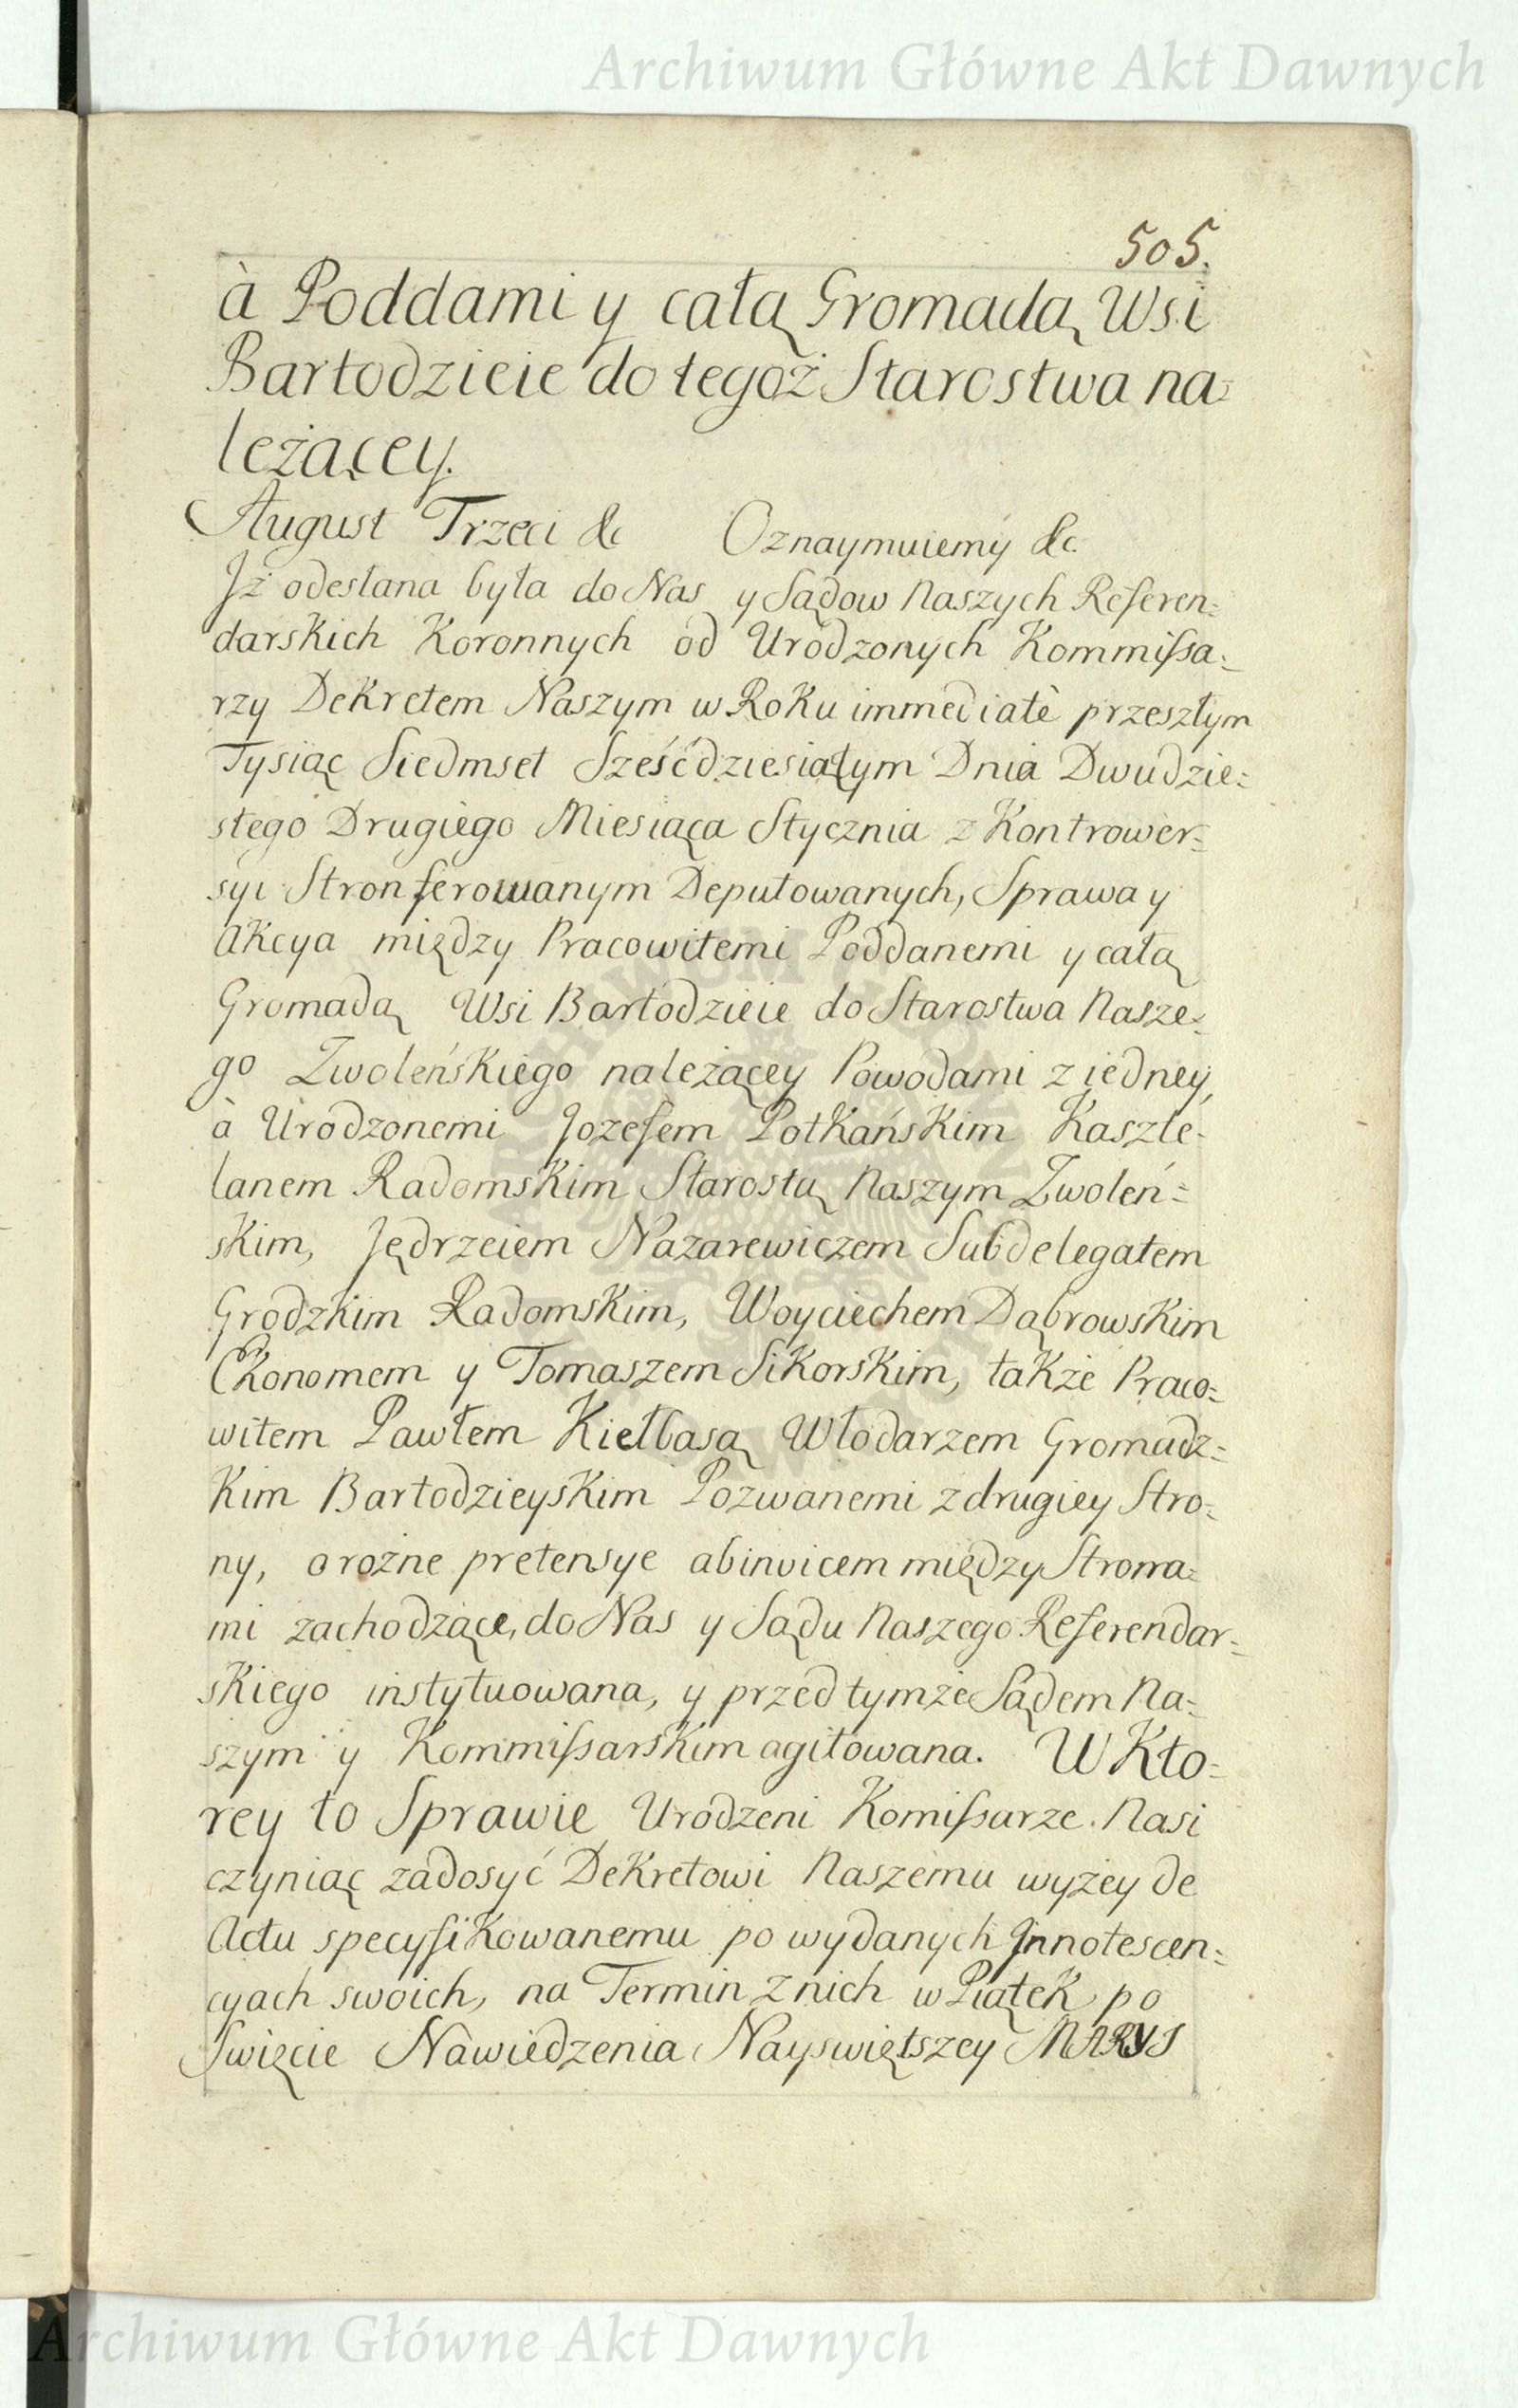 Archiwum Główne Akt Dawnych
505.
à Poddami y całą Gromadą Wsi
Bartodzieie do tegoż Starostwa na=
leżącey.
August Trzeci &c Oznaymuiemy &c.
Jż odesłana była do Nas y Sądow Naszych Referen=
darskich Koronnych od Urodzonych Kommissa=
rzy Dekretem Naszym w Roku immediatè przeszłym
Tysiąc Siedmset Sześćdziesiątym Dnia Dwudzie=
stego Drugiego Miesiąca Stycznia z Kontrower=
syi Stron ferowanym Deputowanych, Sprawa y
Akcya między Pracowitemi Poddanemi y całą
Gromadą Wsi Bartodzieie do Starostwa Nasze=
go Zwoleńskiego należącey Powodami z iedney,
à Urodzonemi Jozefem Potkańskim Kaszte=
lanem Radomskim Starostą Naszym Zwoleń=
skim, Jędrzeiem Nazarewiczem Subdelegatem
Grodzkim Radomskim, Woyciechem Dąbrowskim
Ekonomem y Tomaszem Sikorskim, także Praco=
witem Pawłem Kiełbasą Włodarzem Gromadz=
kim Bartodzieyskim Pozwanemi z drugiey Stro=
ny, o rożne pretensye abinvicem między Strona=
mi zachodzące, do Nas y Sądu Naszego Referendar=
skiego instytuowana, y przed tymże Sądem Na=
szym y Kommissarskim agitowana. W Kto=
rey to Sprawie Urodzeni Komissarze Nasi
czyniąc zadosyć Dekretowi Naszemu wyżey de
Actu specyfikowanemu po wydanych Jnnotescen=
cyach swoich, na Termin z nich w Piątek po
Swięcie Nawiedzenia Nayswiętszey MARYJ
Archiwum Główne Akt Dawnych